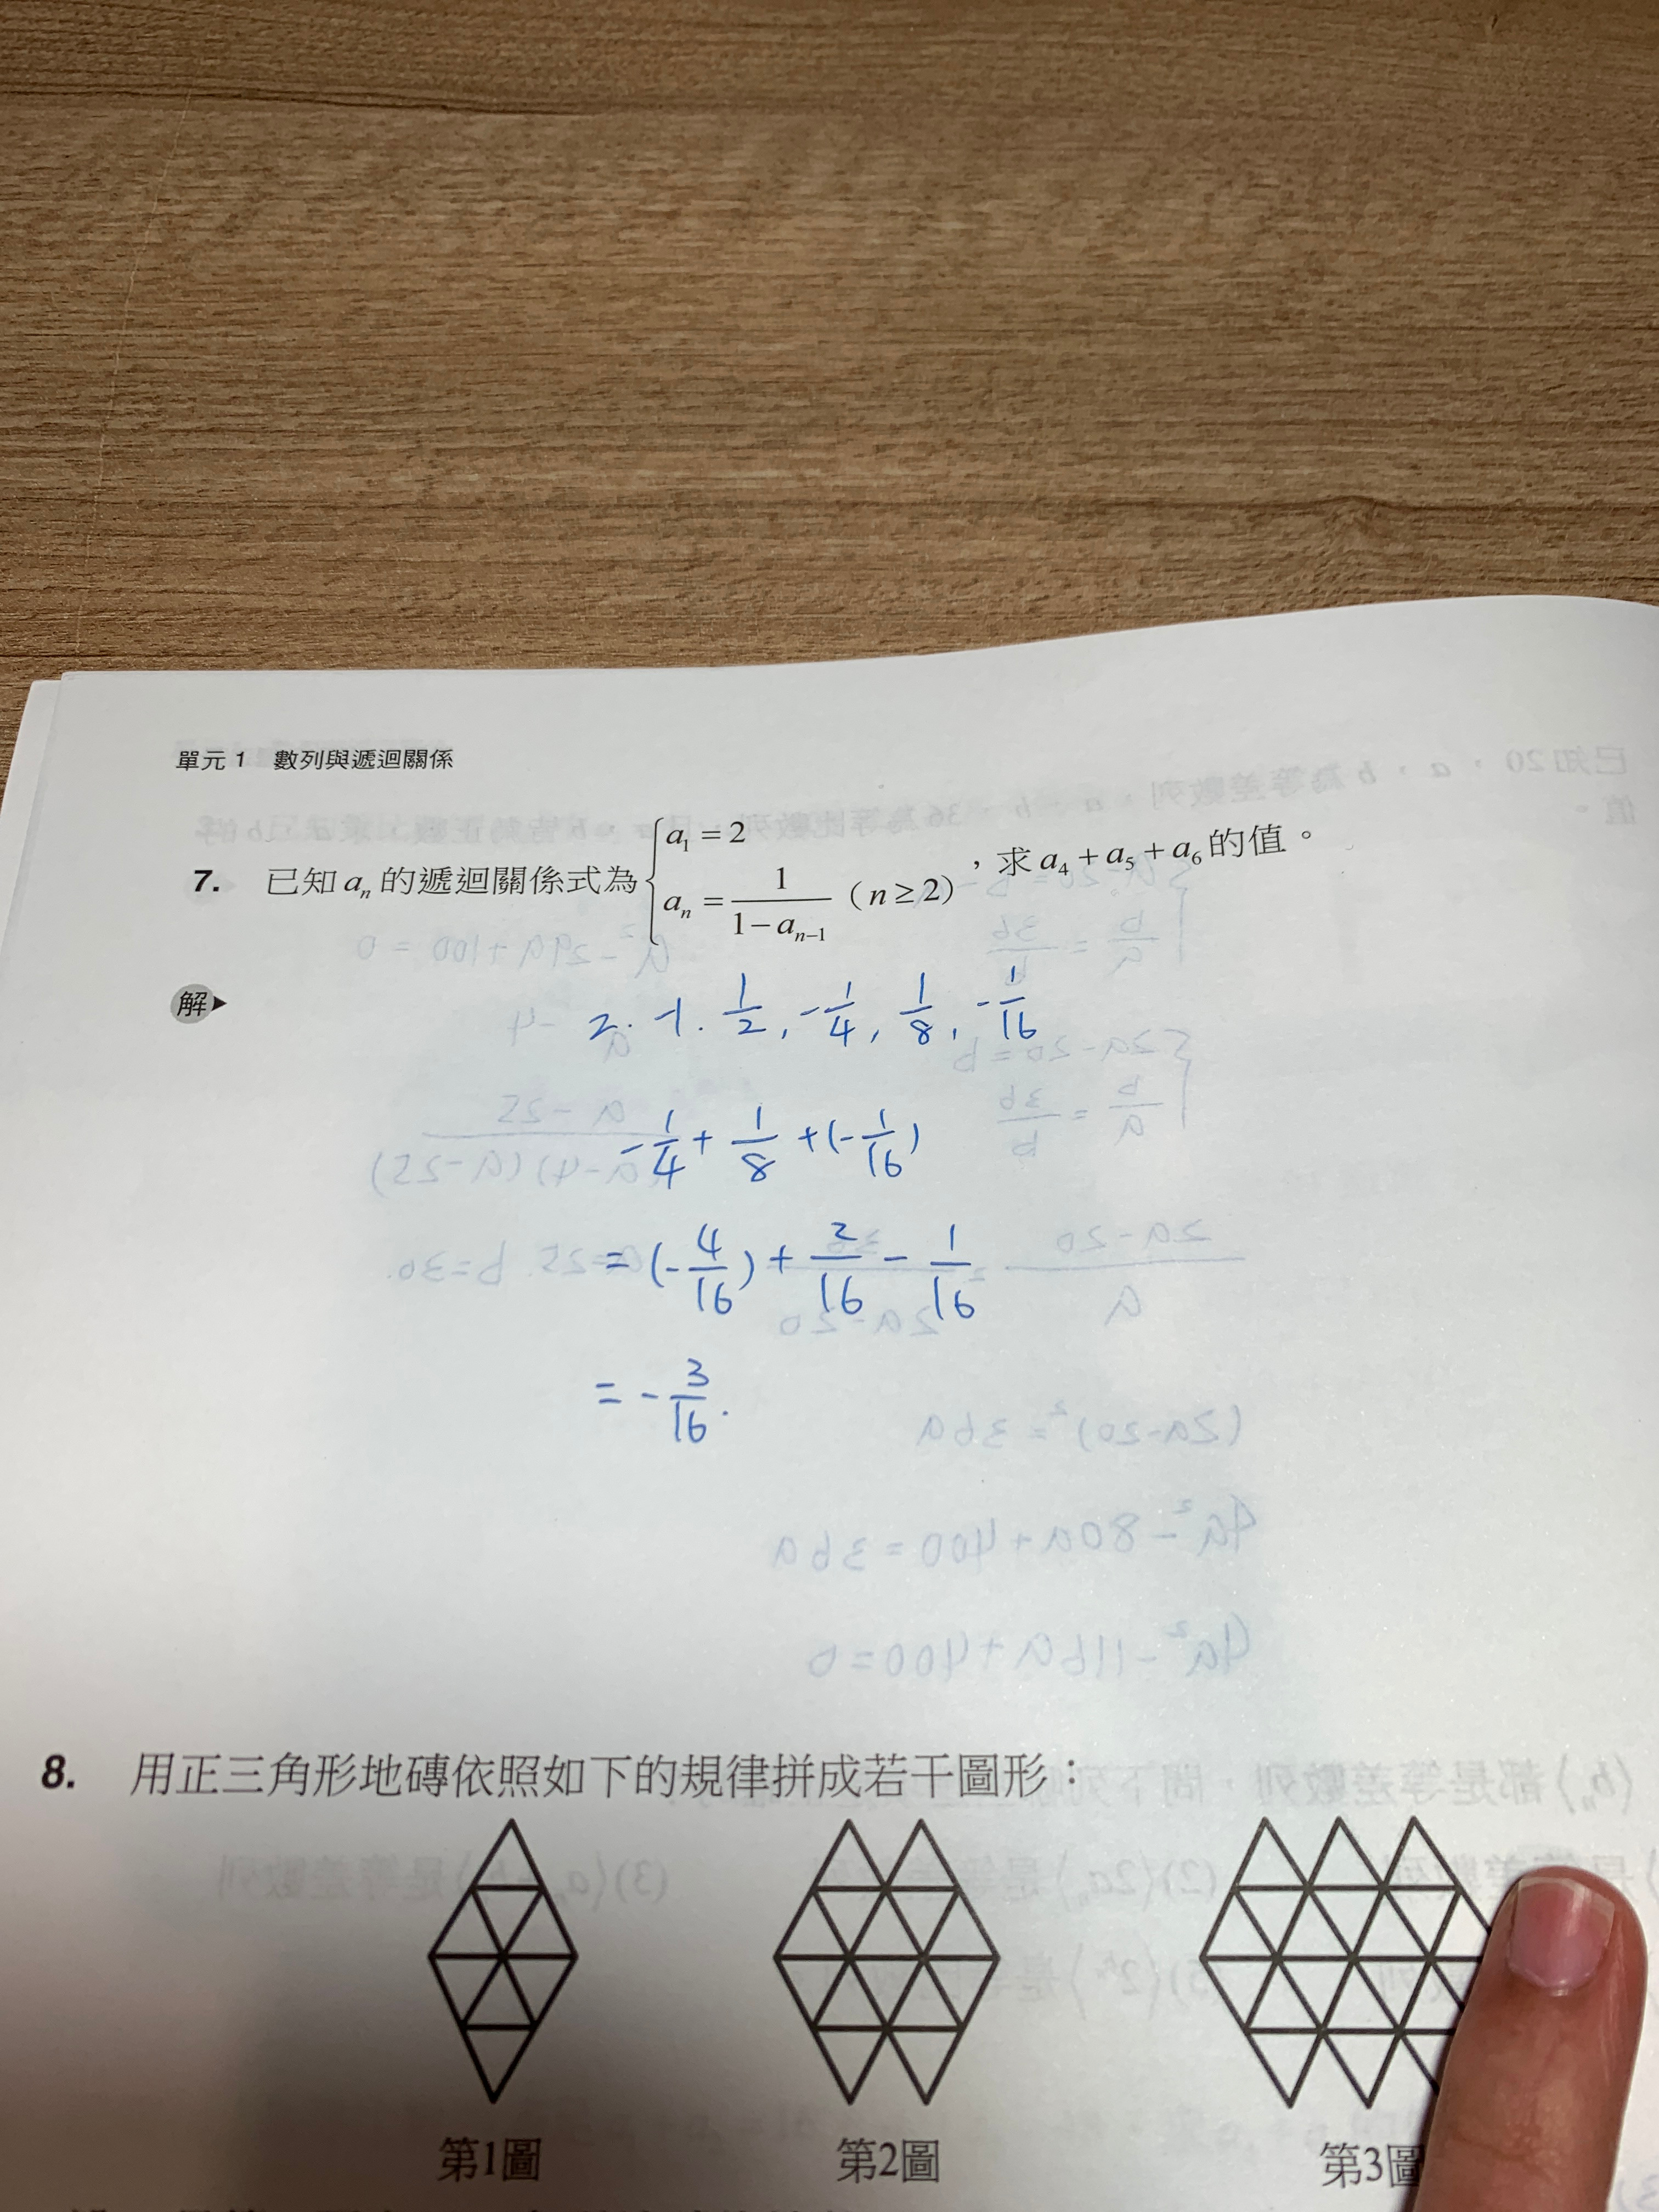 單元 1 數列與遞迴關係
7. 已知 aₙ 的遞迴關係式為 { a₁ = 2 ; aₙ = 1/(1−aₙ₋₁) (n ≥ 2) ，求 a₄ + a₅ + a₆ 的值。
解▶
2. -1. 1/2, -1/4, 1/8, -1/16
-1/4 + 1/8 + (-1/16)
= (-4/16) + 2/16 - 1/16
= -3/16.
8. 用正三角形地磚依照如下的規律拼成若干圖形：
第1圖 第2圖 第3圖